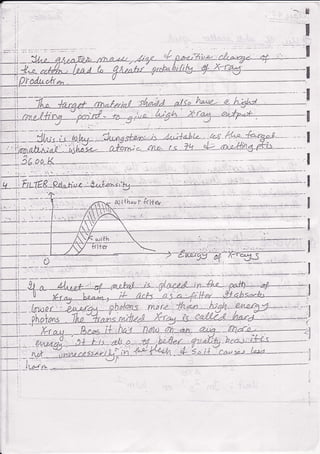 The greater mass, size & positive charge of
the atom lead to greater probability of X-ray
production.
The target material should also have a higher
melting point to give high Xray output.
This is why Tungsten is suitable as the target
material whose atomic no. is 74 & melting pt is
3600K
4 FILTER Relative Intensity
without filter
with
filter
0
Energy of X-rays
If a sheet of metal is placed in the path of
X-ray beam, it acts as a filter. It absorbs
lower energy photons more than high energy
photons The transmitted X-ray is called hard
X-ray Beam it has now on an avg more
energy. It is also of better quality beam its
not unnecessarily in the flesh & so it causes less
harm.